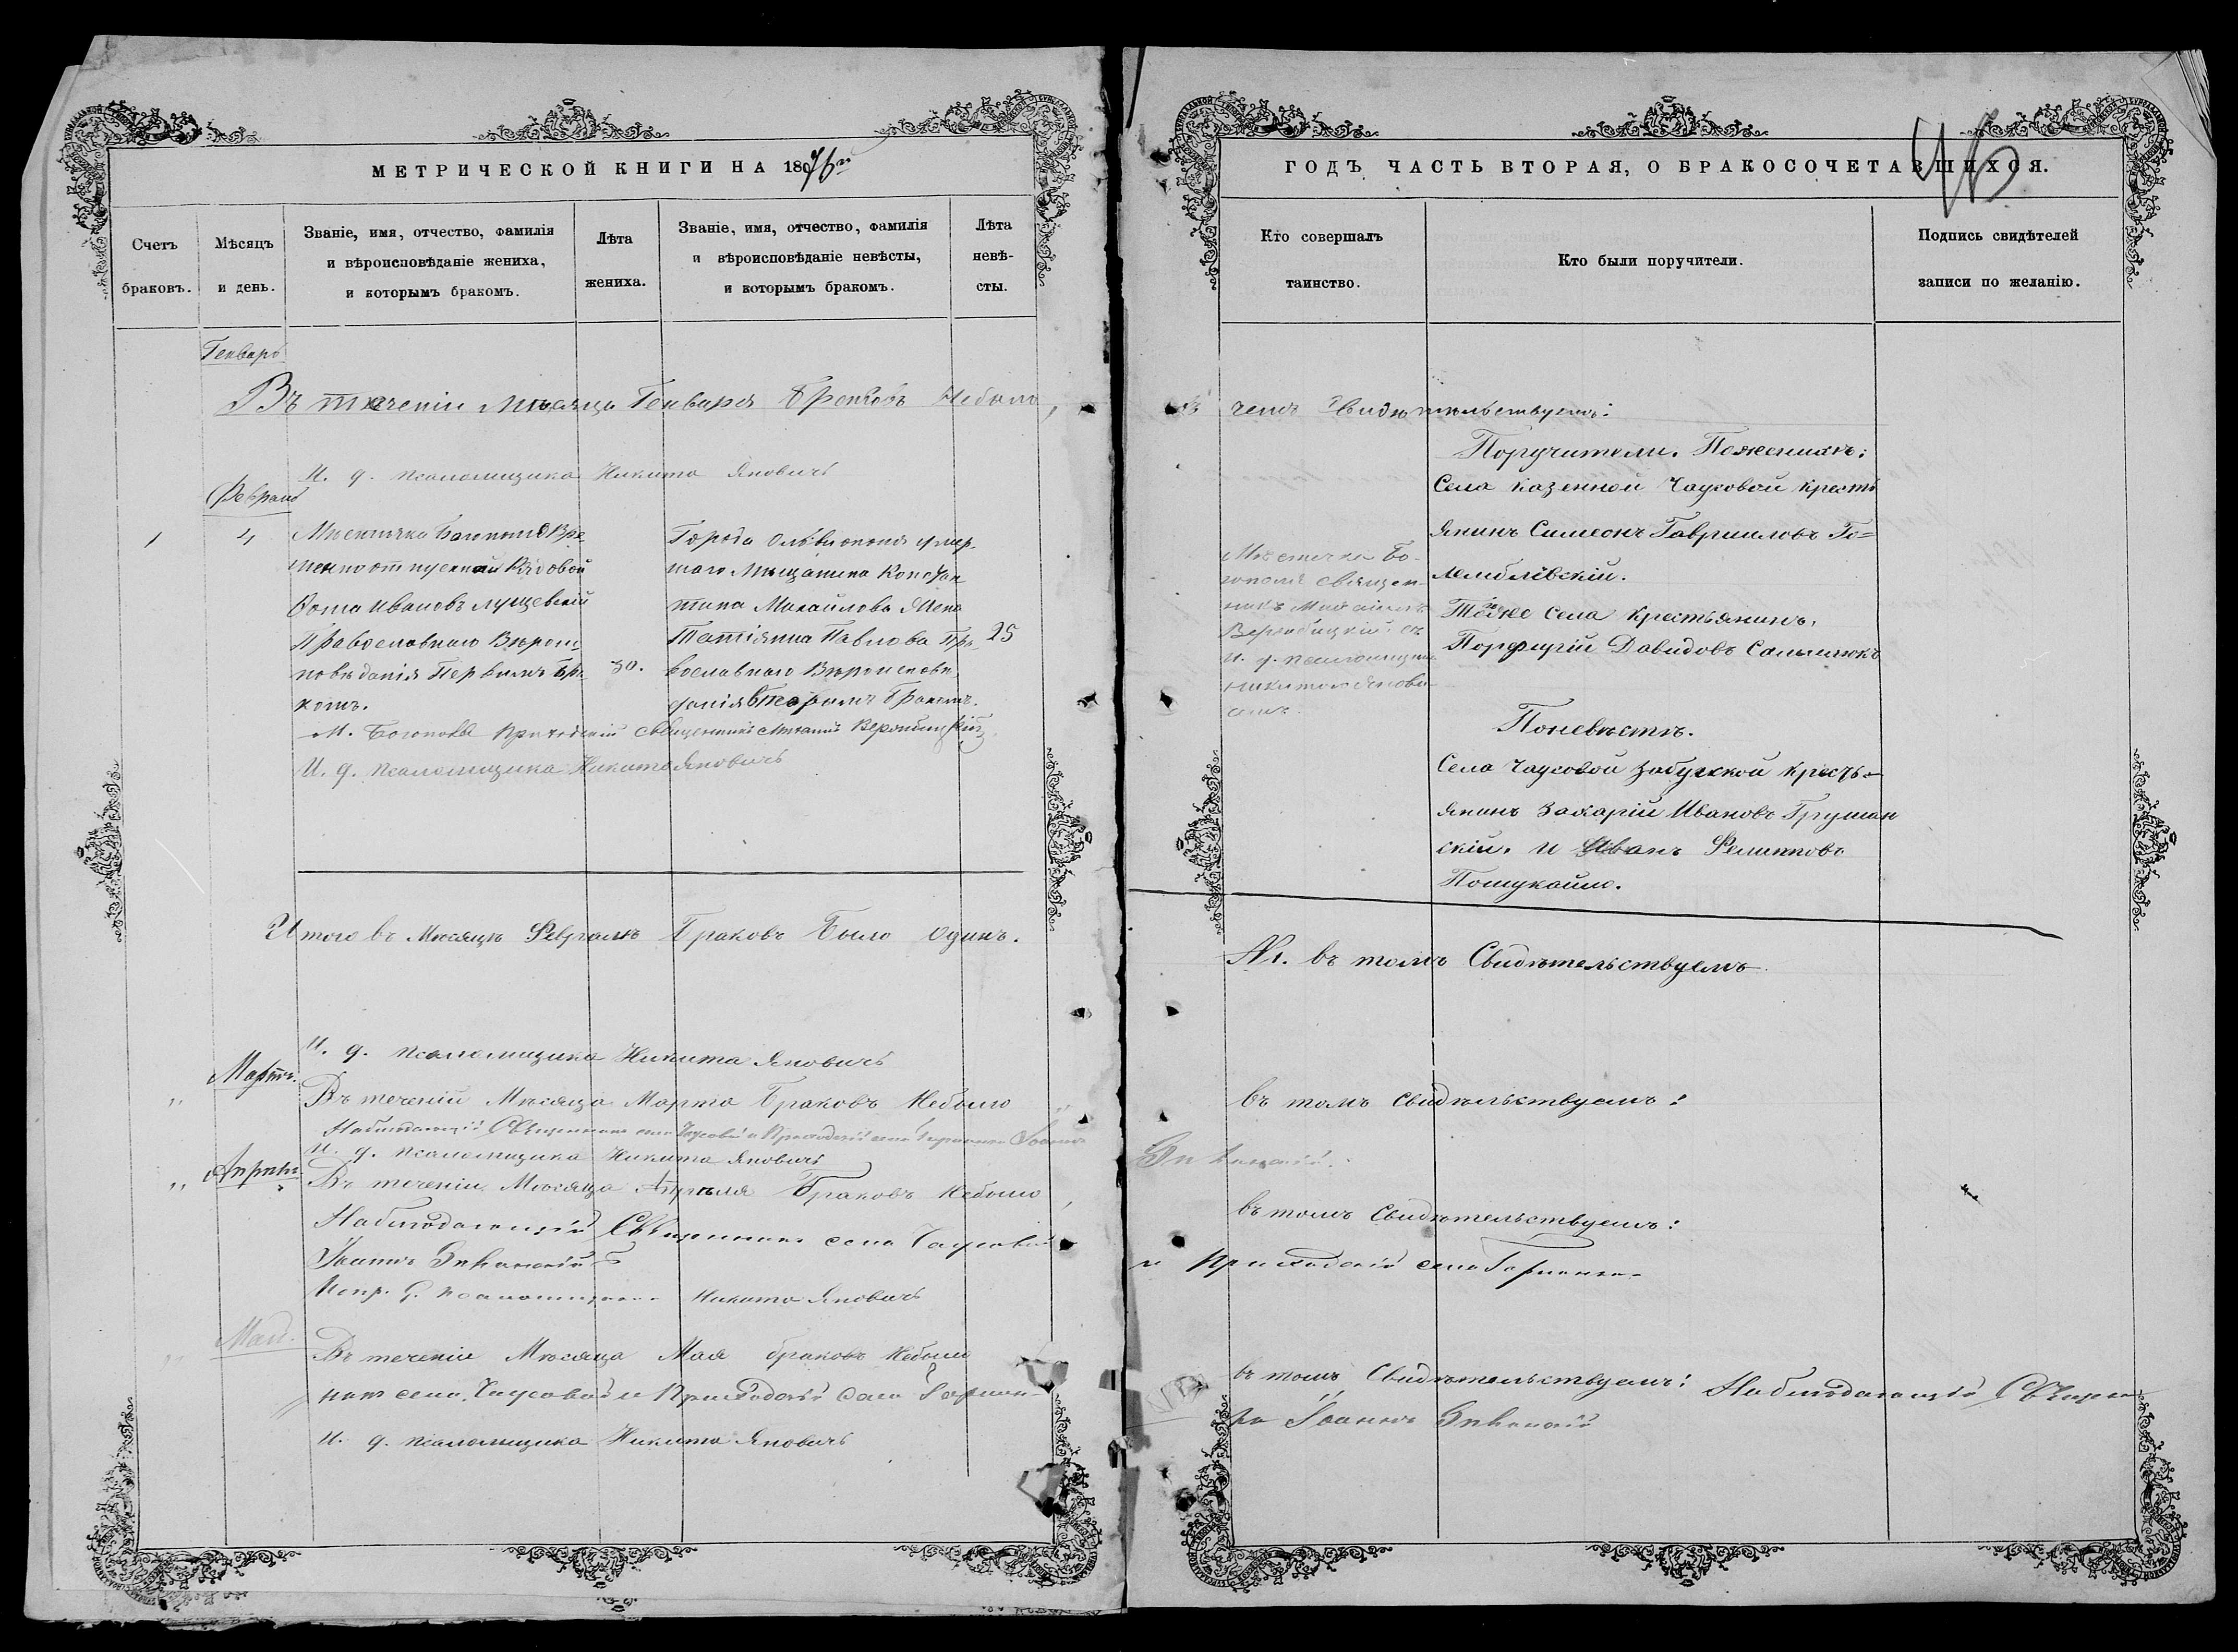 МЕТРИЧЕСКОЙ КНИГИ НА 1876й
Счетъ браковъ.
Мѣсяцъ и день.
Званіе, имя, отчество, фамилія
и вѣроисповѣданіе жениха,
и которымъ бракомъ.
Лѣта жениха.
Званіе, имя, отчество, фамилія
и вѣроисповѣданіе невѣсты,
и которымъ бракомъ.
Лѣта невѣ-
сты.
Генварь
Въ теченіи Мѣсяца Генваря Браковъ Небыло
И. д. псаломщика Никита Яновичъ
Февраль
1
4
Мѣстечка Богополя Вре
менно отпускной Рядовой
Фома Ивановъ Лущевскій
Православнаго Вѣроис
повѣданія Первымъ Бра
комъ.
30.
Города Ольвіополя умер
шаго Мѣщанина Констан
тина Михайлова Жена
Татіянна Павлова Пра
вославнаго Вѣроисповѣ
данія Вторымъ Бракомъ.
25
М. Богополя Приходскій Священникъ Михаилъ
И. д. псаломщика Никита Яновичъ
Итого въ Мѣсяцѣ Февралѣ Браковъ Было Одинъ.
И. д. псаломщика Никита Яновичъ
Мартъ.
Въ теченіи Мѣсяца Марта Браковъ Небыло
Наблюдающій Священникъ села Чаусовой и Приходскій села
И. д. псаломщика Никита Яновичъ
Апрѣль
Въ теченіи Мѣсяца Апрѣля Браковъ Небыло
Наблюдающій Священникъ села Чаусовой
Іоаннъ
Испр. д. псаломщика Никита Яновичъ
Май.
Въ теченіи Мѣсяца Мая браковъ Небыло
никъ села Чаусовой и Приходскій села
И. д. псаломщика Никита Яновичъ
ГОДЪ ЧАСТЬ ВТОРАЯ, О БРАКОСОЧЕТАВШИХСЯ.
46
Кто совершалъ
таинство.
Кто были поручители.
Подпись свидѣтелей
записи по желанію.
чемъ Свидѣтельствуемъ:
Мѣстечка Бо-
гополя Священ-
никъ Михаилъ
съ
И. д. псаломщика
Никитою Янови
чемъ.
Поручители. Поженихѣ:
Села Казенной Чаусовой Кресть
янинъ Симеонъ Гавриловъ Го=
лемблевскій.
Тогоже Села Крестьянинъ,
Порфирій Давидовъ
Поневѣстѣ.
Села Чаусовой Забужской Кресть-
янинъ Захарій Ивановъ Грушан
скій. и Иванъ Филипповъ
Пошукайло.
№ 1. въ томъ Свидѣтельствуемъ
въ томъ Свидѣтельствуемъ:
въ томъ Свидѣтельствуемъ:
и Приходскій села
въ томъ Свидѣтельствуемъ: Наблюдающій Священ
Іоаннъ